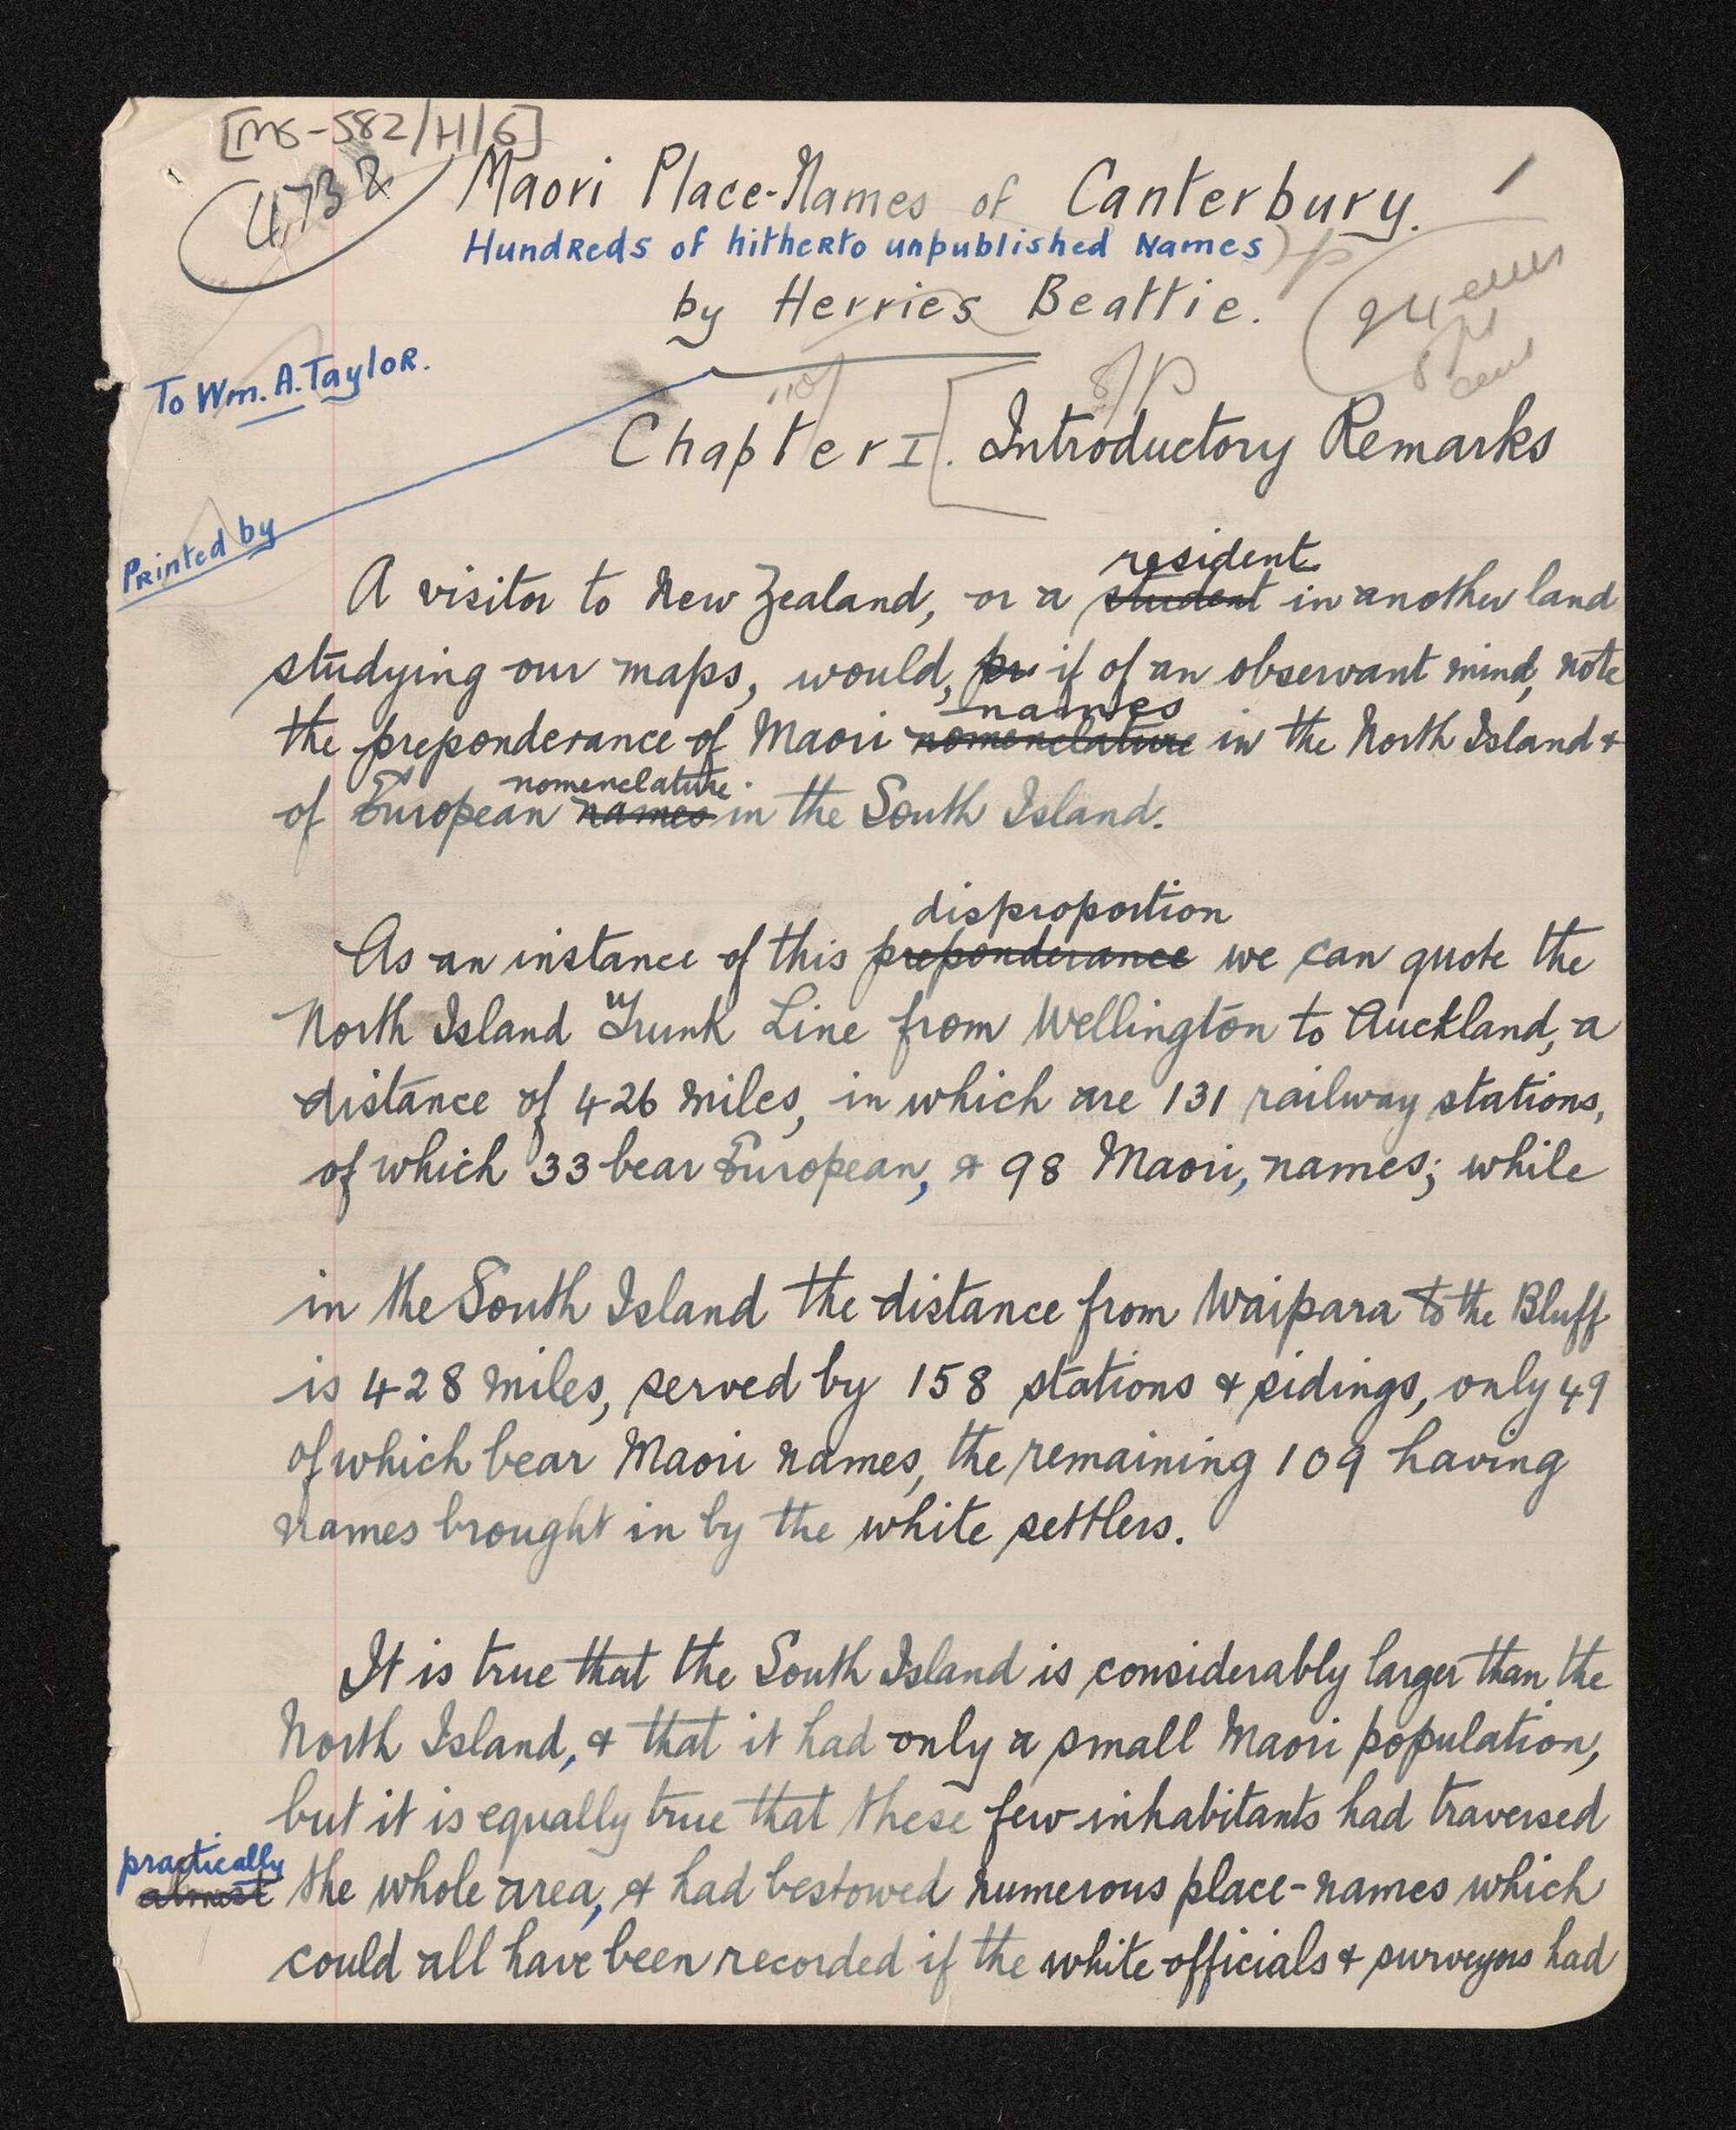 [MS-582/H/6]
4732
Maori Place-Names of Canterbury.
Hundreds of hitherto unpublished Names
by Herries Beattie.
To Wm. A. Taylor.
8/p
Chapter I. Introductory Remarks
Printed by
resident
A visitor to New Zealand, or a student in another land
studying our maps, would, pr if of an observant mind, note
names
the preponderance of Maori nomenclature in the North Island &
nomenclature
of European names in the South Island.
disproportion
As an instance of this preponderance we can quote the
North Island Trunk Line from Wellington to Auckland, a
distance of 426 miles, in which are 131 railway stations,
of which 33 bear European, & 98 Maori, names; while
in the South Island the distance from Waipara to the Bluff
is 428 miles, served by 158 stations & sidings, only 49
of which bear Maori names, the remaining 109 having
names brought in by the white settlers.
It is true that the South Island is considerably larger than the
North Island, & that it had only a small Maori population,
but it is equally true that these few inhabitants had traversed
practically
almost the whole area, & had bestowed numerous place-names which
could all have been recorded if the white officials & surveyors had